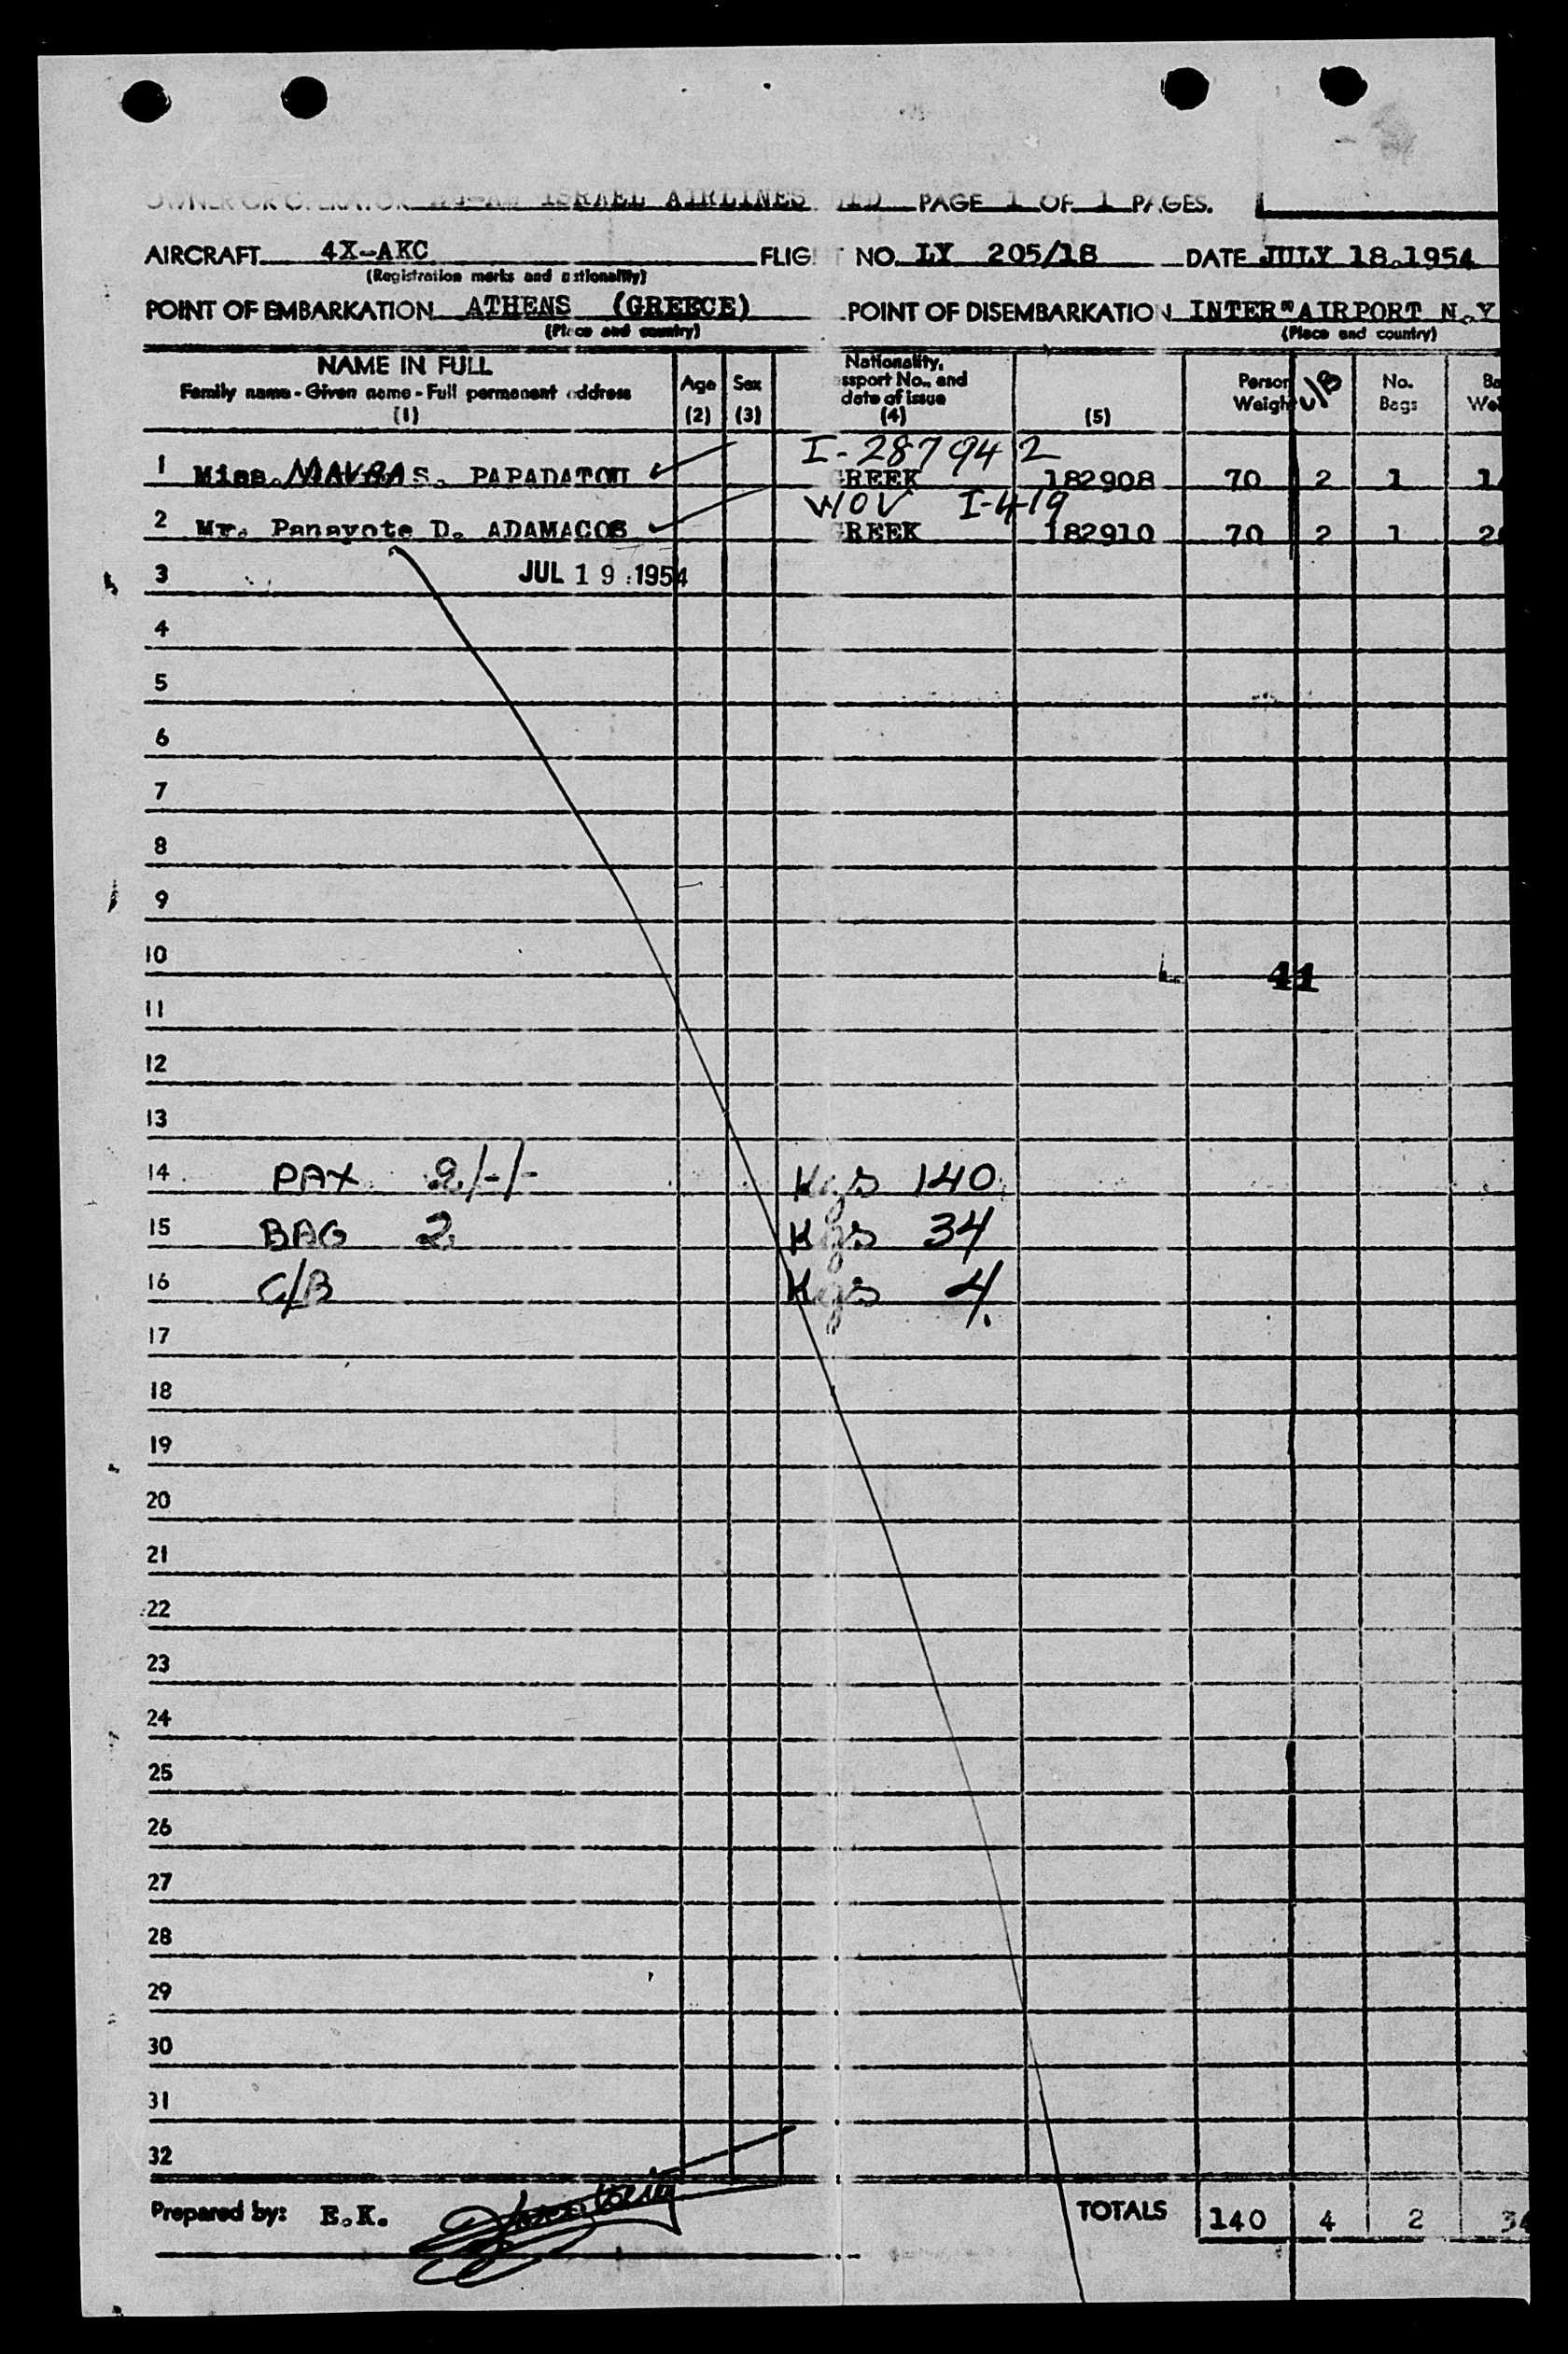 OWNER OR OPERATOR EL-AL ISRAEL AIRLINES LTD PAGE 1 OF 1 PAGES.
AIRCRAFT 4X-AKC FLIGHT NO. LY 205/18 DATE JULY 18.1954
(Registration marks and nationality)
POINT OF EMBARKATION ATHENS (GREECE) POINT OF DISEMBARKATION INTER" AIRPORT N.Y
(Place and country) (Place and country)
NAME IN FULL
Family name - Given name - Full permanent address
(1)
Age
(2)
Sex
(3)
Nationality,
ssport No., and
date of issue
(4)
(5)
Person
Weight
C/B
No.
Bags
Ba
Wei
I-287942
1 Miss. MAVRA S. PAPADATOU GREEK 182908 70 2 1 1
WOV I-419
2 Mr. Panayote D. ADAMACOS GREEK 182910 70 2 1 2
3 JUL 19 1954
4
5
6
7
8
9
10 41
11
12
13
14 PAX 2/-/- Kgs 140
15 BAG 2 Kgs 34
16 C/B Kgs 4.
17
18
19
20
21
22
23
24
25
26
27
28
29
30
31
32
Prepared by: E.K. TOTALS 140 4 2 34